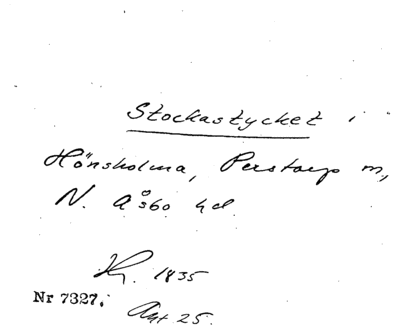 Stockastycket i
Hönsholma, Perstorp m,
N. Åsbo hd.
1835
Nr 7327.
Akt 25.